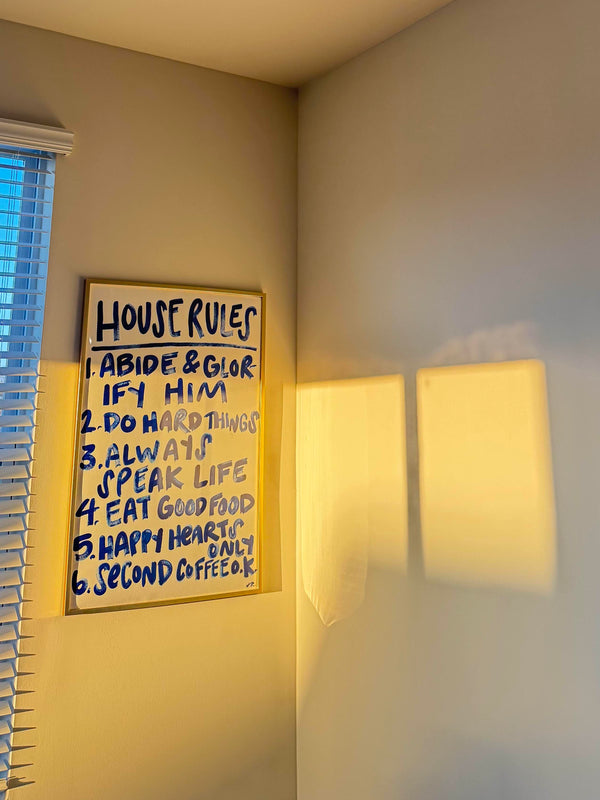 HOUSE RULES
1. ABIDE & GLOR-
IFY HIM
2. DO HARD THINGS
3. ALWAYS
SPEAK LIFE
4. EAT GOOD FOOD
5. HAPPY HEARTS
ONLY
6. SECOND COFFEE O.K.